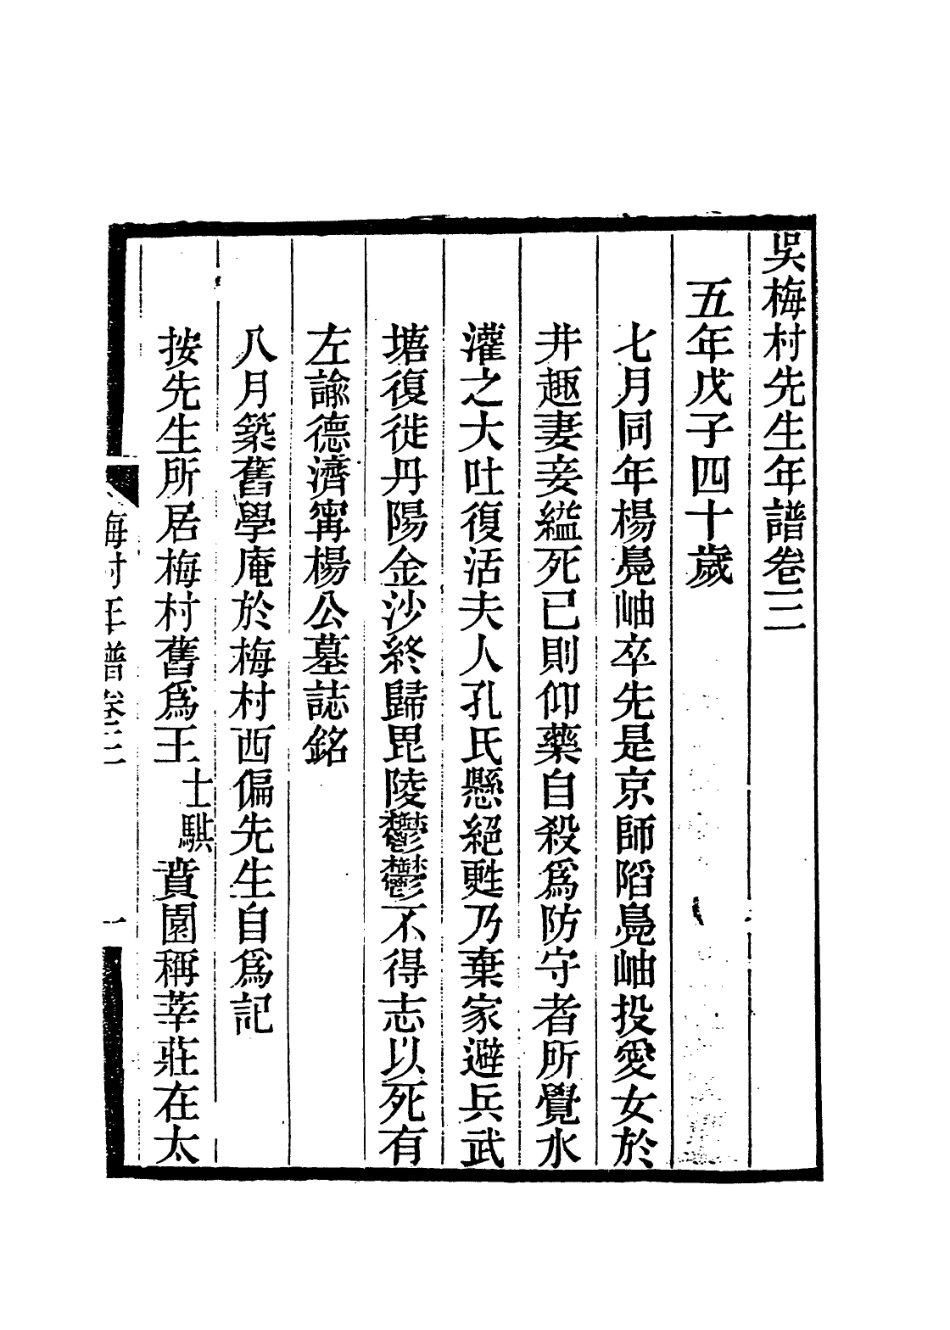 吳梅村先生年譜卷三
五年戊子四十歲
七月同年楊鳧岫卒先是京師陷鳧岫投愛女於
井趣妻妾縊死已則仰藥自殺爲防守者所覺水
灌之大吐復活夫人孔氏懸絕甦乃棄家避兵武
塘復徙丹陽金沙終歸毘陵鬱鬱不得志以死有
左諭德濟甯楊公墓誌銘
八月築舊學庵於梅村西偏先生自爲記
按先生所居梅村舊爲王士騏賁園稱莘莊在太
梅村年譜卷三
一